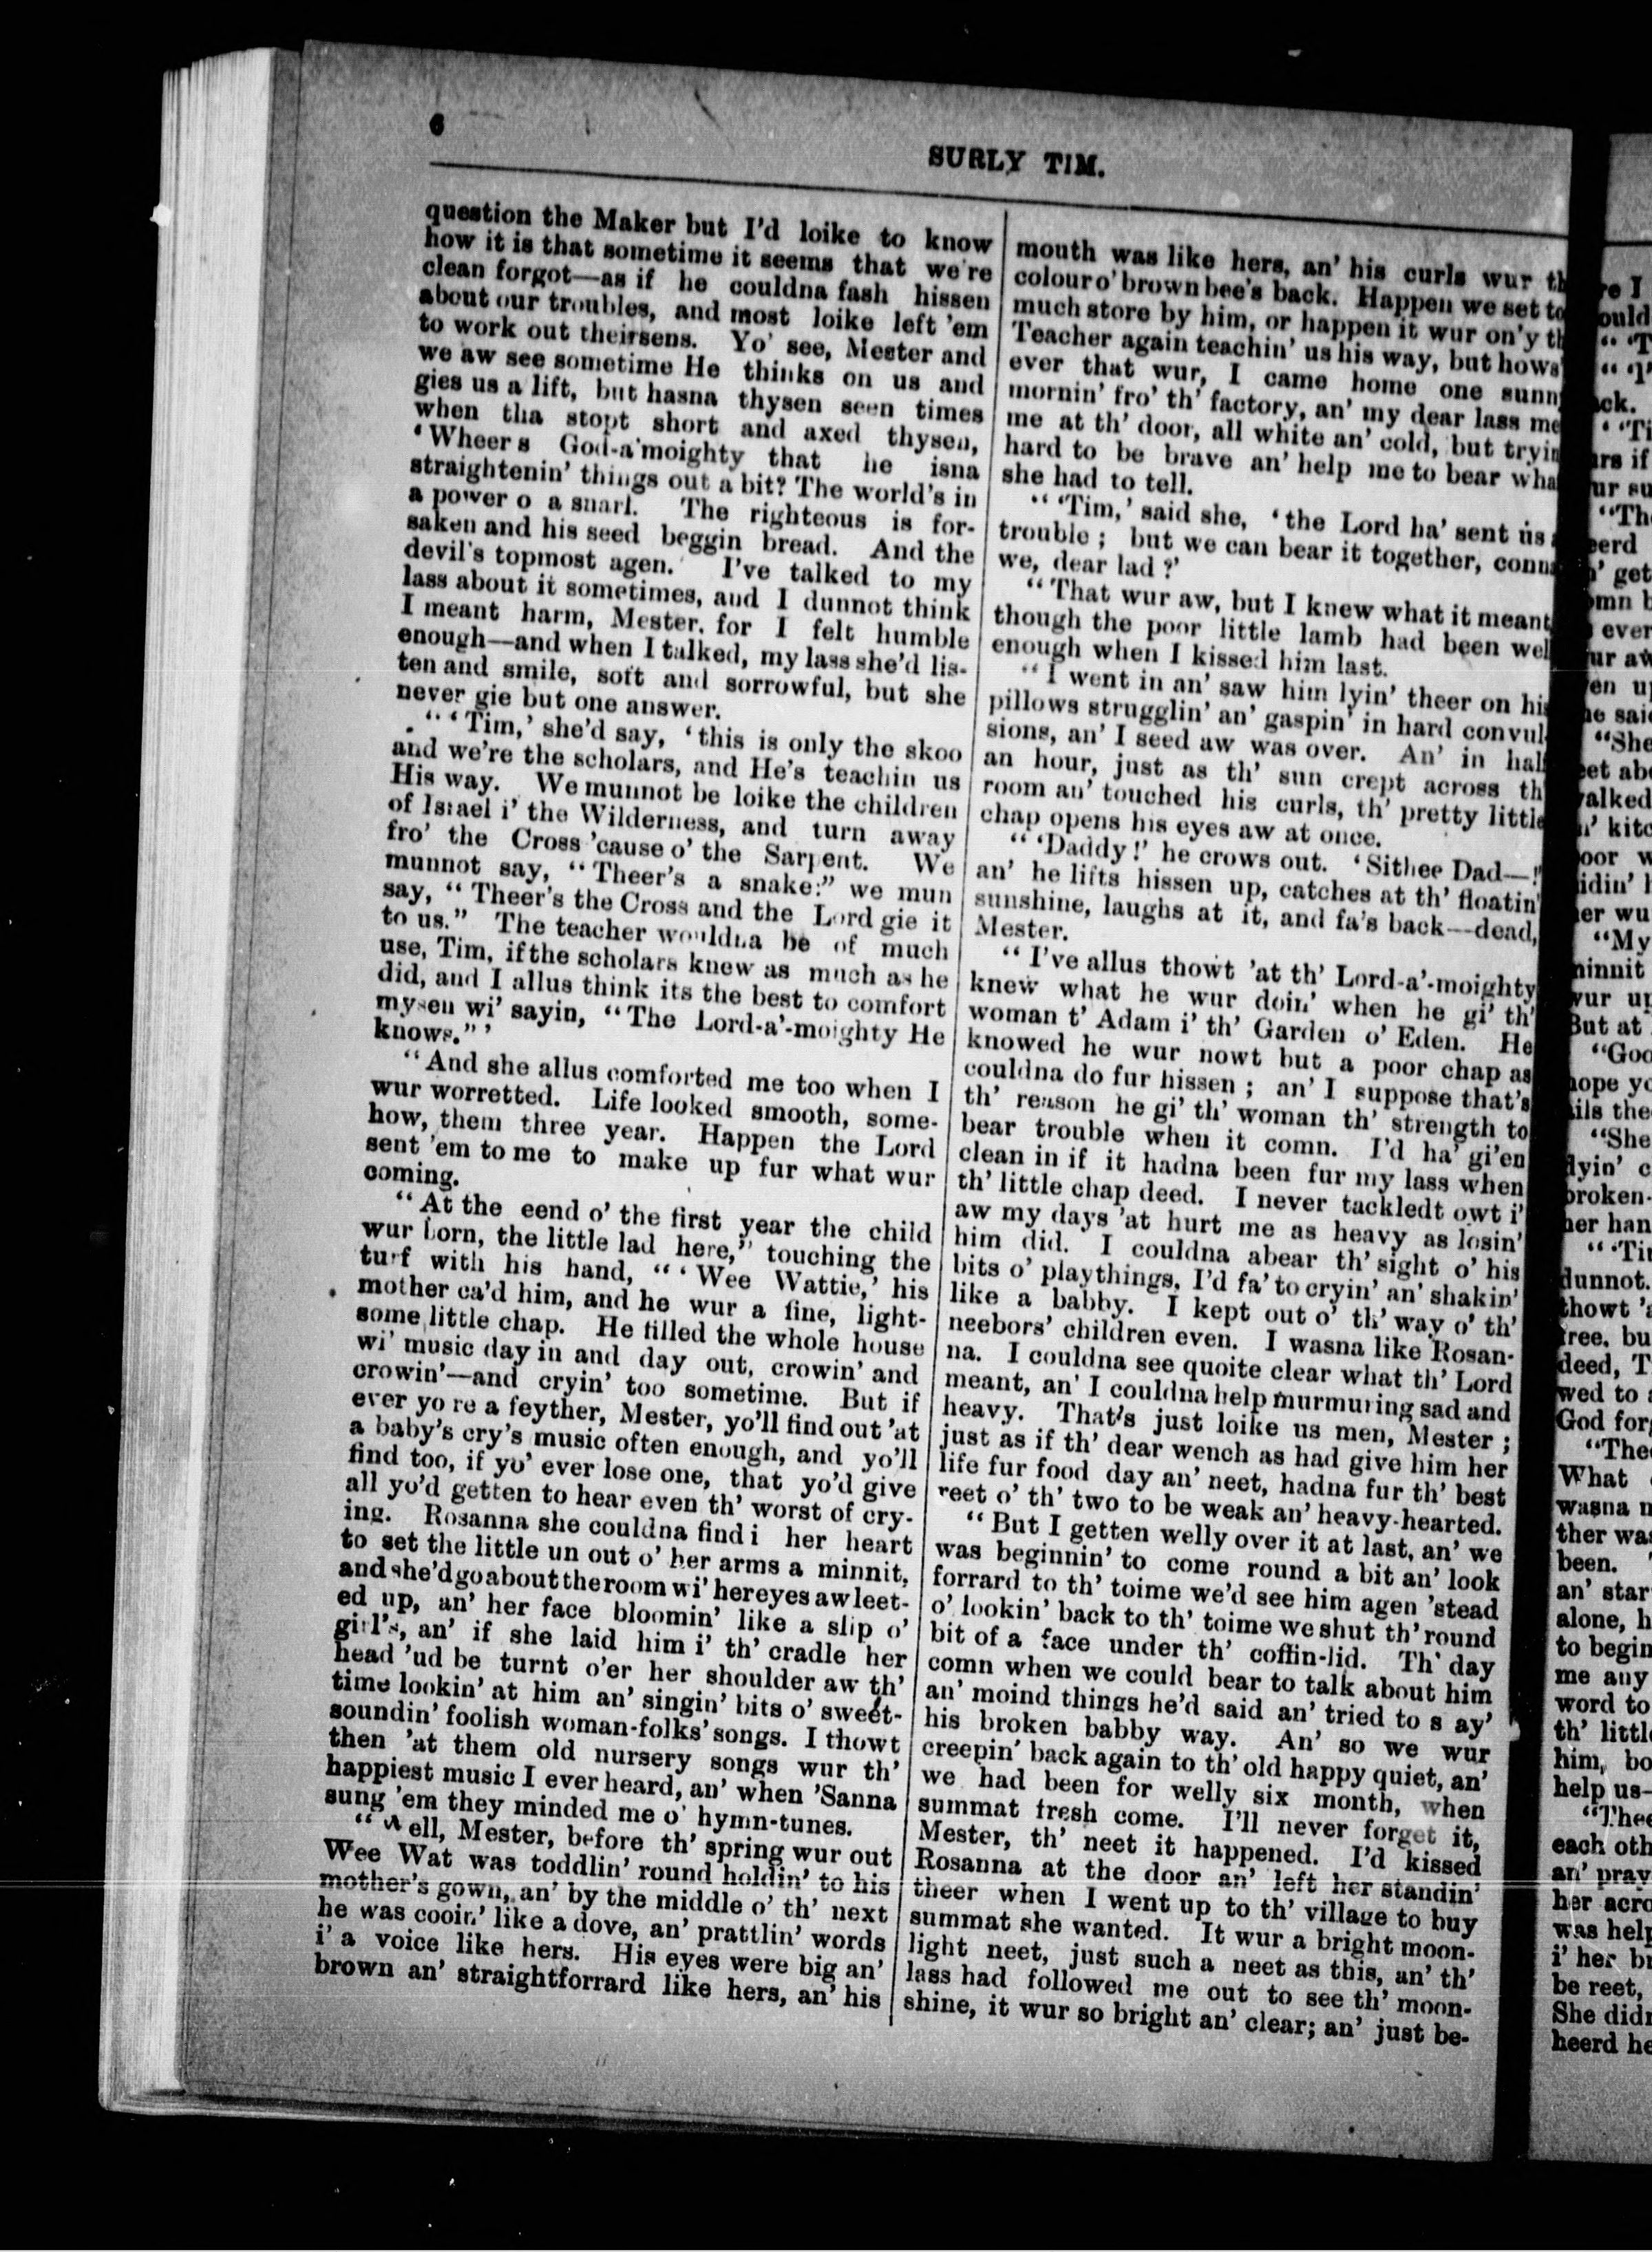 6
SURLY TIM.
question the Maker but I'd loike to know
how it is that sometime it seems that we're
clean forgot—as if he couldna fash hissen
about our troubles, and most loike left 'em
to work out theirsens. Yo' see, Mester and
we aw see sometime He thinks on us and
gies us a lift, but hasna thysen seen times
when tha stopt short and axed thysen,
'Wheers God-a'moighty that he isna
straightenin' things out a bit? The world's in
a power o a snarl. The righteous is for-
saken and his seed beggin bread. And the
devil's topmost agen.' I've talked to my
lass about it sometimes, and I dunnot think
I meant harm, Mester. for I felt humble
enough—and when I talked, my lass she'd lis-
ten and smile, soft and sorrowful, but she
never gie but one answer.
"'Tim,' she'd say, 'this is only the skoo
and we're the scholars, and He's teachin us
His way. We munnot be loike the children
of Israel i' the Wilderness, and turn away
fro' the Cross 'cause o' the Sarpent. We
munnot say, "Theer's a snake:" we mun
say, "Theer's the Cross and the Lord gie it
to us." The teacher wouldna be of much
use, Tim, if the scholars knew as much as he
did, and I allus think its the best to comfort
mysen wi' sayin, "The Lord-a'-moighty He
knows."'
"And she allus comforted me too when I
wur worretted. Life looked smooth, some-
how, them three year. Happen the Lord
sent 'em to me to make up fur what wur
coming.
"At the eend o' the first year the child
wur born, the little lad here," touching the
turf with his hand, "'Wee Wattie,' his
mother ca'd him, and he wur a fine, light-
some little chap. He filled the whole house
wi' music day in and day out, crowin' and
crowin'—and cryin' too sometime. But if
ever yo re a feyther, Mester, yo'll find out 'at
a baby's cry's music often enough, and yo'll
find too, if yo' ever lose one, that yo'd give
all yo'd getten to hear even th' worst of cry-
ing. Rosanna she couldna find i her heart
to set the little un out o' her arms a minnit,
and she'd go about the room wi' her eyes aw leet-
ed up, an' her face bloomin' like a slip o'
girl's, an' if she laid him i' th' cradle her
head 'ud be turnt o'er her shoulder aw th'
time lookin' at him an' singin' bits o' sweet-
soundin' foolish woman-folks' songs. I thowt
then 'at them old nursery songs wur th'
happiest music I ever heard, an' when 'Sanna
sung 'em they minded me o' hymn-tunes.
"Well, Mester, before th' spring wur out
Wee Wat was toddlin' round holdin' to his
mother's gown, an' by the middle o' th' next
he was cooin' like a dove, an' prattlin' words
i' a voice like hers. His eyes were big an'
brown an' straightforrard like hers, an' his
mouth was like hers, an' his curls wur th
colour o' brown bee's back. Happen we set to
much store by him, or happen it wur on'y th
Teacher again teachin' us his way, but hows
ever that wur, I came home one sunn
mornin' fro' th' factory, an' my dear lass me
me at th' door, all white an' cold, but tryin
hard to be brave an' help me to bear wha
she had to tell.
"'Tim,' said she, 'the Lord ha' sent us
trouble; but we can bear it together, conn
we, dear lad?'
"That wur aw, but I knew what it meant
though the poor little lamb had been wel
enough when I kissed him last.
"I went in an' saw him lyin' theer on his
pillows strugglin' an' gaspin' in hard convul-
sions, an' I seed aw was over. An' in hal
an hour, just as th' sun crept across th
room an' touched his curls, th' pretty little
chap opens his eyes aw at once.
"'Daddy!' he crows out. 'Sithee Dad—!'
an' he lifts hissen up, catches at th' floatin'
sunshine, laughs at it, and fa's back—dead,
Mester.
"I've allus thowt 'at th' Lord-a'-moighty
knew what he wur doin' when he gi' th'
woman t' Adam i' th' Garden o' Eden. He
knowed he wur nowt but a poor chap as
couldna do fur hissen; an' I suppose that's
th' reason he gi' th' woman th' strength to
bear trouble when it comn. I'd ha' gi'en
clean in if it hadna been fur my lass when
th' little chap deed. I never tackledt owt i'
aw my days 'at hurt me as heavy as losin'
him did. I couldna abear th' sight o' his
bits o' playthings, I'd fa' to cryin' an' shakin'
like a babby. I kept out o' th' way o' th'
neebors' children even. I wasna like Rosan-
na. I couldna see quoite clear what th' Lord
meant, an' I couldna help murmuring sad and
heavy. That's just loike us men, Mester;
just as if th' dear wench as had give him her
life fur food day an' neet, hadna fur th' best
reet o' th' two to be weak an' heavy-hearted.
"But I getten welly over it at last, an' we
was beginnin' to come round a bit an' look
forrard to th' toime we'd see him agen 'stead
o' lookin' back to th' toime we shut th' round
bit of a face under th' coffin-lid. Th' day
comn when we could bear to talk about him
an' moind things he'd said an' tried to s ay'
his broken babby way. An' so we wur
creepin' back again to th' old happy quiet, an'
we had been for welly six month, when
summat fresh come. I'll never forget it,
Mester, th' neet it happened. I'd kissed
Rosanna at the door an' left her standin'
theer when I went up to th' village to buy
summat she wanted. It wur a bright moon-
light neet, just such a neet as this, an' th'
lass had followed me out to see th' moon-
shine, it wur so bright an' clear; an' just be-